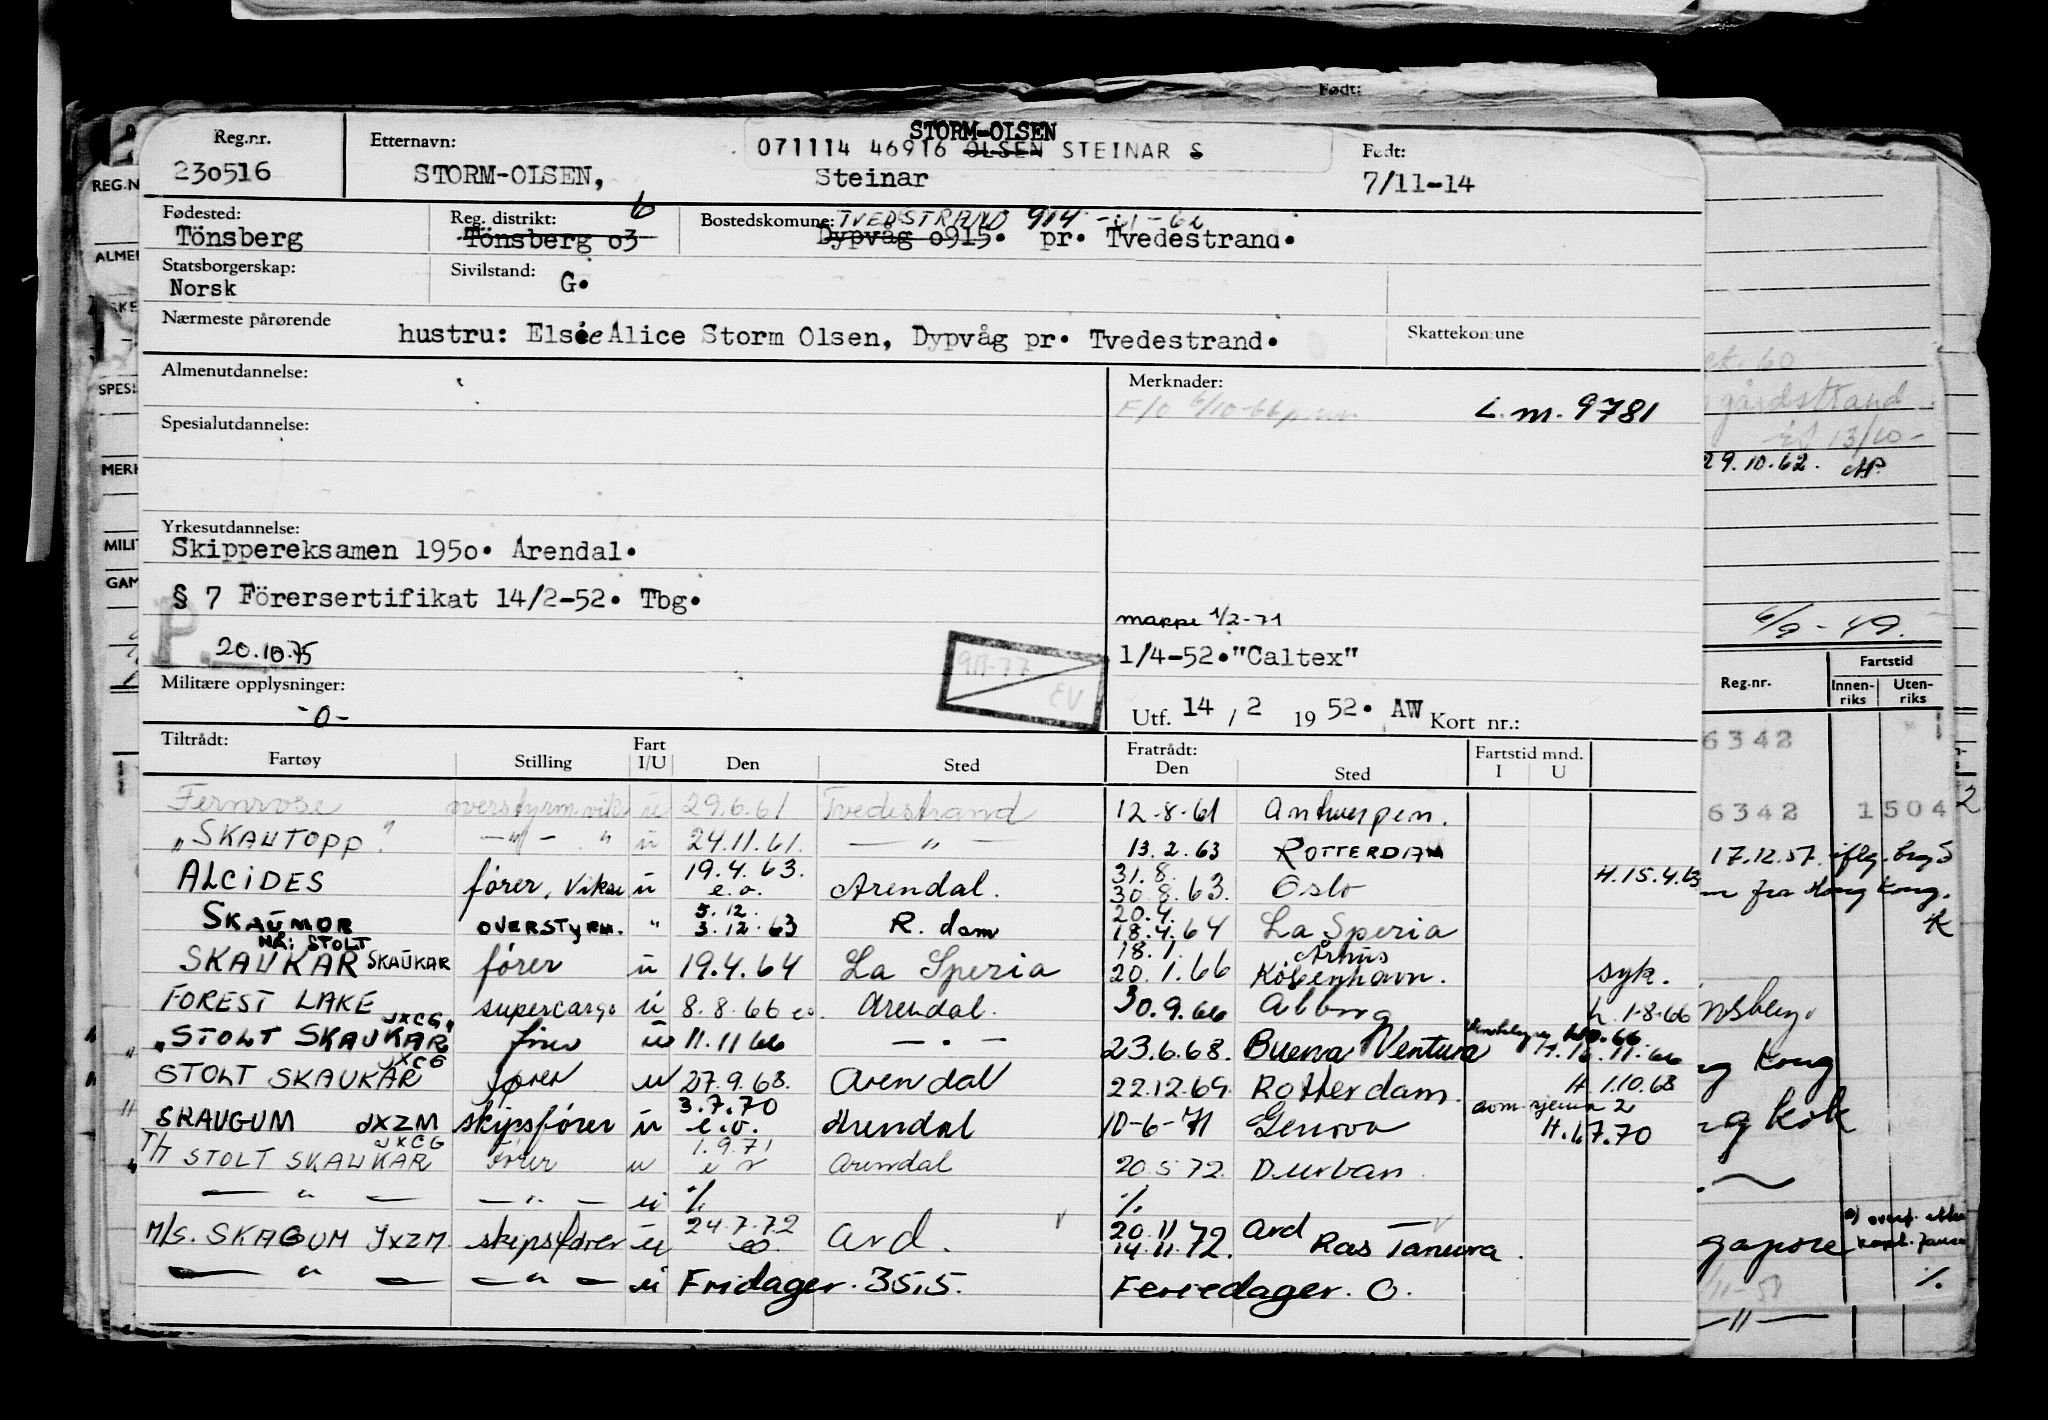 Født:
Reg.nr.
230516
Etternavn:
STORM-OLSEN, Steinar
STORM-OLSEN
071114 46916 OLSEN STEINAR S
Født:
7/11-14
Fødested:
Tönsberg
Reg. distrikt: 6
Tönsberg o3
Bostedskomune: TVEDESTRAND 914
Dypvåg o915. pr. Tvedestrand.
Statsborgerskap:
Norsk
Sivilstand:
G.
Nærmeste pårørende
hustru: Else Alice Storm Olsen, Dypvåg pr. Tvedestrand.
Skattekomune
Almenutdannelse:
Merknader:
L.m. 9781
Spesialutdannelse:
Yrkesutdannelse:
Skippereksamen 195o. Arendal.
§ 7 Förersertifikat 14/2-52. Tbg.
P. 20.10.75
mappe 1/2-71
1/4-52."Caltex"
Militære opplysninger:
-0-
Utf. 14 / 2 19 52. AW Kort nr.:
Tiltrådt:
Fartøy Stilling Fart I/U Den Sted
Fratrådt:
Den Sted
Fartstid mnd.
I U
Fernrose overstyrm. vik u 29.6.61 Tvedestrand 12-8-61 Antwerpen.
"SKAUTOPP" — " — " u 24.11.61. — " — 13.2.63 ROTTERDAM
ALCIDES fører, Vikar u 19.4.63. e.o. Arendal. 31.8. 30.8.63. Oslo H.15.4.63
SKAUMOR OVERSTYRM. " 5.12. 3.12.63 R.dam 20.4. 18.4.64 La Spezia
NÅ: STOLT SKAUKAR
SKAUKAR fører u 19.4.64 La Spezia 18.1. 20.1.66 Århus København. syk.
FOREST LAKE supercargo u 8.8.66 eo. Arendal. 30.9.66 Ålborg 1-8-66
JXCG
"STOLT SKAUKAR fører u 11.11 66 — " — 23.6.68. Buena Ventura
JXCG
STOLT SKAUKAR fører u 27.9.68. Arendal 22.12.69. Rotterdam H 1.10.68
SKAUGUM JXZM skipsfører u 3.7.70 e.o. Arendal 10-6-71 Genova
JXCG
T/T STOLT SKAUKAR Fører u 1.9.71 Arendal 20.5.72. Durban
— " — — " — u %. %.
M/S. SKAGUM JXZM. skipsfører u 24.7.72 eo. Ard. 20.11 14.11.72. Ard Ras Tanura.
— " — — " — u Fridager. 35,5. Feriedager. 0.
REG.N
ALMEN
SPESI
MERK
MILIT
GAM
29.10.62.
6/9-49.
Reg.nr.
Fartstid
Innen-riks Uten-riks
6342
6342 1504
17.12.57.